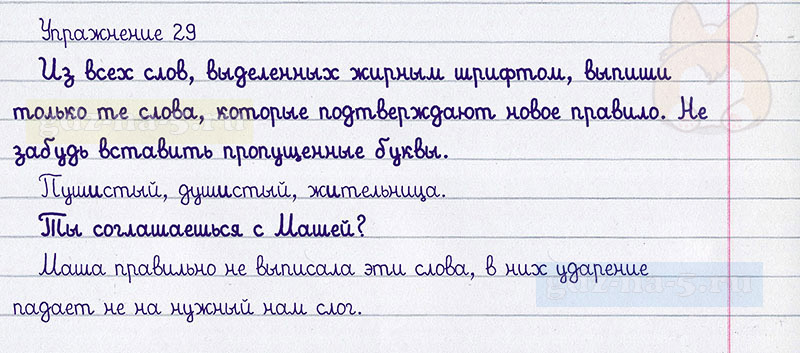 Упражнение 29
Из всех слов, выделенных жирным шрифтом, выпиши
только те слова, которые подтверждают новое правило. Не
забудь вставить пропущенные буквы.
Пушистый, душистый, жительница.
Ты соглашаешься с Машей?
Маша правильно не выписала эти слова, в них ударение
падает не на нужный нам слог.
gdz-na-5.ru
gdz-na-5.ru